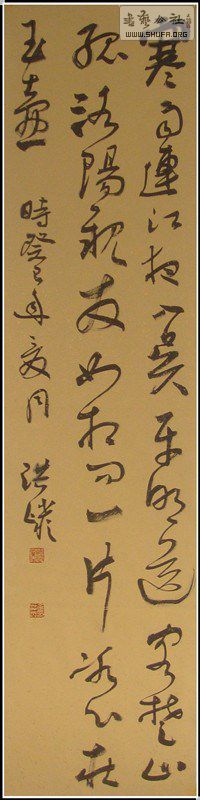 寒雨連江夜入吳平明送客楚山
孤洛陽親友如相問一片冰心在
玉壺 時癸巳年夏月 洪
書藝公社
WWW.SHUFA.ORG